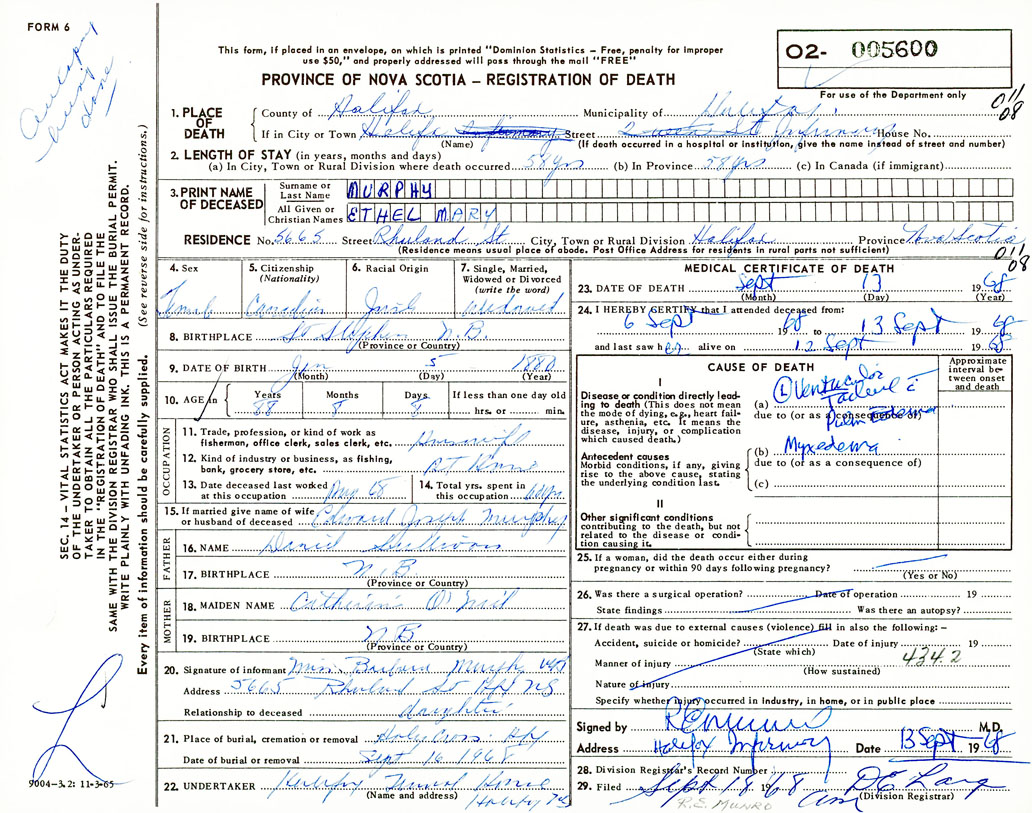 FORM 6
Autopsy being done
This form, if placed in an envelope, on which is printed "Dominion Statistics – Free, penalty for improper
use $50," and properly addressed will pass through the mail "FREE"
PROVINCE OF NOVA SCOTIA – REGISTRATION OF DEATH
O2- 005600
For use of the Department only
011
08
1. PLACE OF DEATH
County of Halifax Municipality of
If in City or Town Halifax Street Infirmary House No.
(Name) (If death occurred in a hospital or institution, give the name instead of street and number)
2. LENGTH OF STAY (in years, months and days)
(a) In City, Town or Rural Division where death occurred 58 yrs (b) In Province 58 yrs (c) In Canada (if immigrant)
3. PRINT NAME OF DECEASED
Surname or Last Name MURPHY
All Given or Christian Names ETHEL MARY
RESIDENCE No. 5665 Street Rhuland St City, Town or Rural Division Halifax Province Nova Scotia
(Residence means usual place of abode. Post Office Address for residents in rural parts not sufficient)
011
08
4. Sex Female
5. Citizenship (Nationality) Canadian
6. Racial Origin Irish
7. Single, Married, Widowed or Divorced (write the word) Widowed
8. BIRTHPLACE St Stephen N.B.
(Province or Country)
9. DATE OF BIRTH Jan 5 1880
(Month) (Day) (Year)
10. AGE in Years Months Days If less than one day old
88 8 8 hrs. or min.
OCCUPATION
11. Trade, profession, or kind of work as fisherman, office clerk, sales clerk, etc. Housewife
12. Kind of industry or business, as fishing, bank, grocery store, etc. At Home
13. Date deceased last worked at this occupation Aug 68
14. Total yrs. spent in this occupation
15. If married give name of wife or husband of deceased Edward Joseph Murphy
FATHER
16. NAME Daniel Sullivan
17. BIRTHPLACE N.B.
(Province or Country)
MOTHER
18. MAIDEN NAME Catherine O'Neil
19. BIRTHPLACE N B
(Province or Country)
20. Signature of informant Miss Barbara Murphy
Address 5665 Rhuland St Hfx NS
Relationship to deceased daughter
21. Place of burial, cremation or removal Holy Cross Hfx
Date of burial or removal Sept 16 1968
22. UNDERTAKER Halifax Funeral Home
(Name and address) Halifax NS
MEDICAL CERTIFICATE OF DEATH
23. DATE OF DEATH Sept 13 1968
(Month) (Day) (Year)
24. I HEREBY CERTIFY that I attended deceased from:
6 Sept 1968 to 13 Sept 1968
and last saw her alive on 12 Sept 1968
CAUSE OF DEATH
Approximate interval between onset and death
I
Disease or condition directly leading to death (This does not mean the mode of dying, e.g., heart failure, asthenia, etc. It means the disease, injury, or complication which caused death.)
(a) (L) Ventricular Failure c̄
due to (or as a consequence of)
Pulm Edema
Antecedent causes
Morbid conditions, if any, giving rise to the above cause, stating the underlying condition last.
(b) Myxedema
due to (or as a consequence of)
(c)
II
Other significant conditions
contributing to the death, but not related to the disease or condition causing it.
25. If a woman, did the death occur either during
pregnancy or within 90 days following pregnancy?
(Yes or No)
26. Was there a surgical operation? Date of operation 19
State findings Was there an autopsy?
27. If death was due to external causes (violence) fill in also the following: –
Accident, suicide or homicide? Date of injury 19
(State which) 434.2
Manner of injury
(How sustained)
Nature of injury
Specify whether injury occurred in Industry, in home, or in public place
Signed by M.D.
Address Halifax Infirmary Date 13 Sept 1968
28. Division Registrar's Record Number
29. Filed Sept 18 1968
(Division Registrar)
R.E. MUNRO
SEC. 14 – VITAL STATISTICS ACT MAKES IT THE DUTY
OF THE UNDERTAKER OR PERSON ACTING AS UNDER-
TAKER TO OBTAIN ALL THE PARTICULARS REQUIRED
IN THE "REGISTRATION OF DEATH" AND TO FILE THE
SAME WITH THE DIVISION REGISTRAR WHO SHALL ISSUE THE BURIAL PERMIT.
WRITE PLAINLY WITH UNFADING INK. THIS IS A PERMANENT RECORD.
Every item of information should be carefully supplied. (See reverse side for instructions.)
9004–3.2: 11-3-65